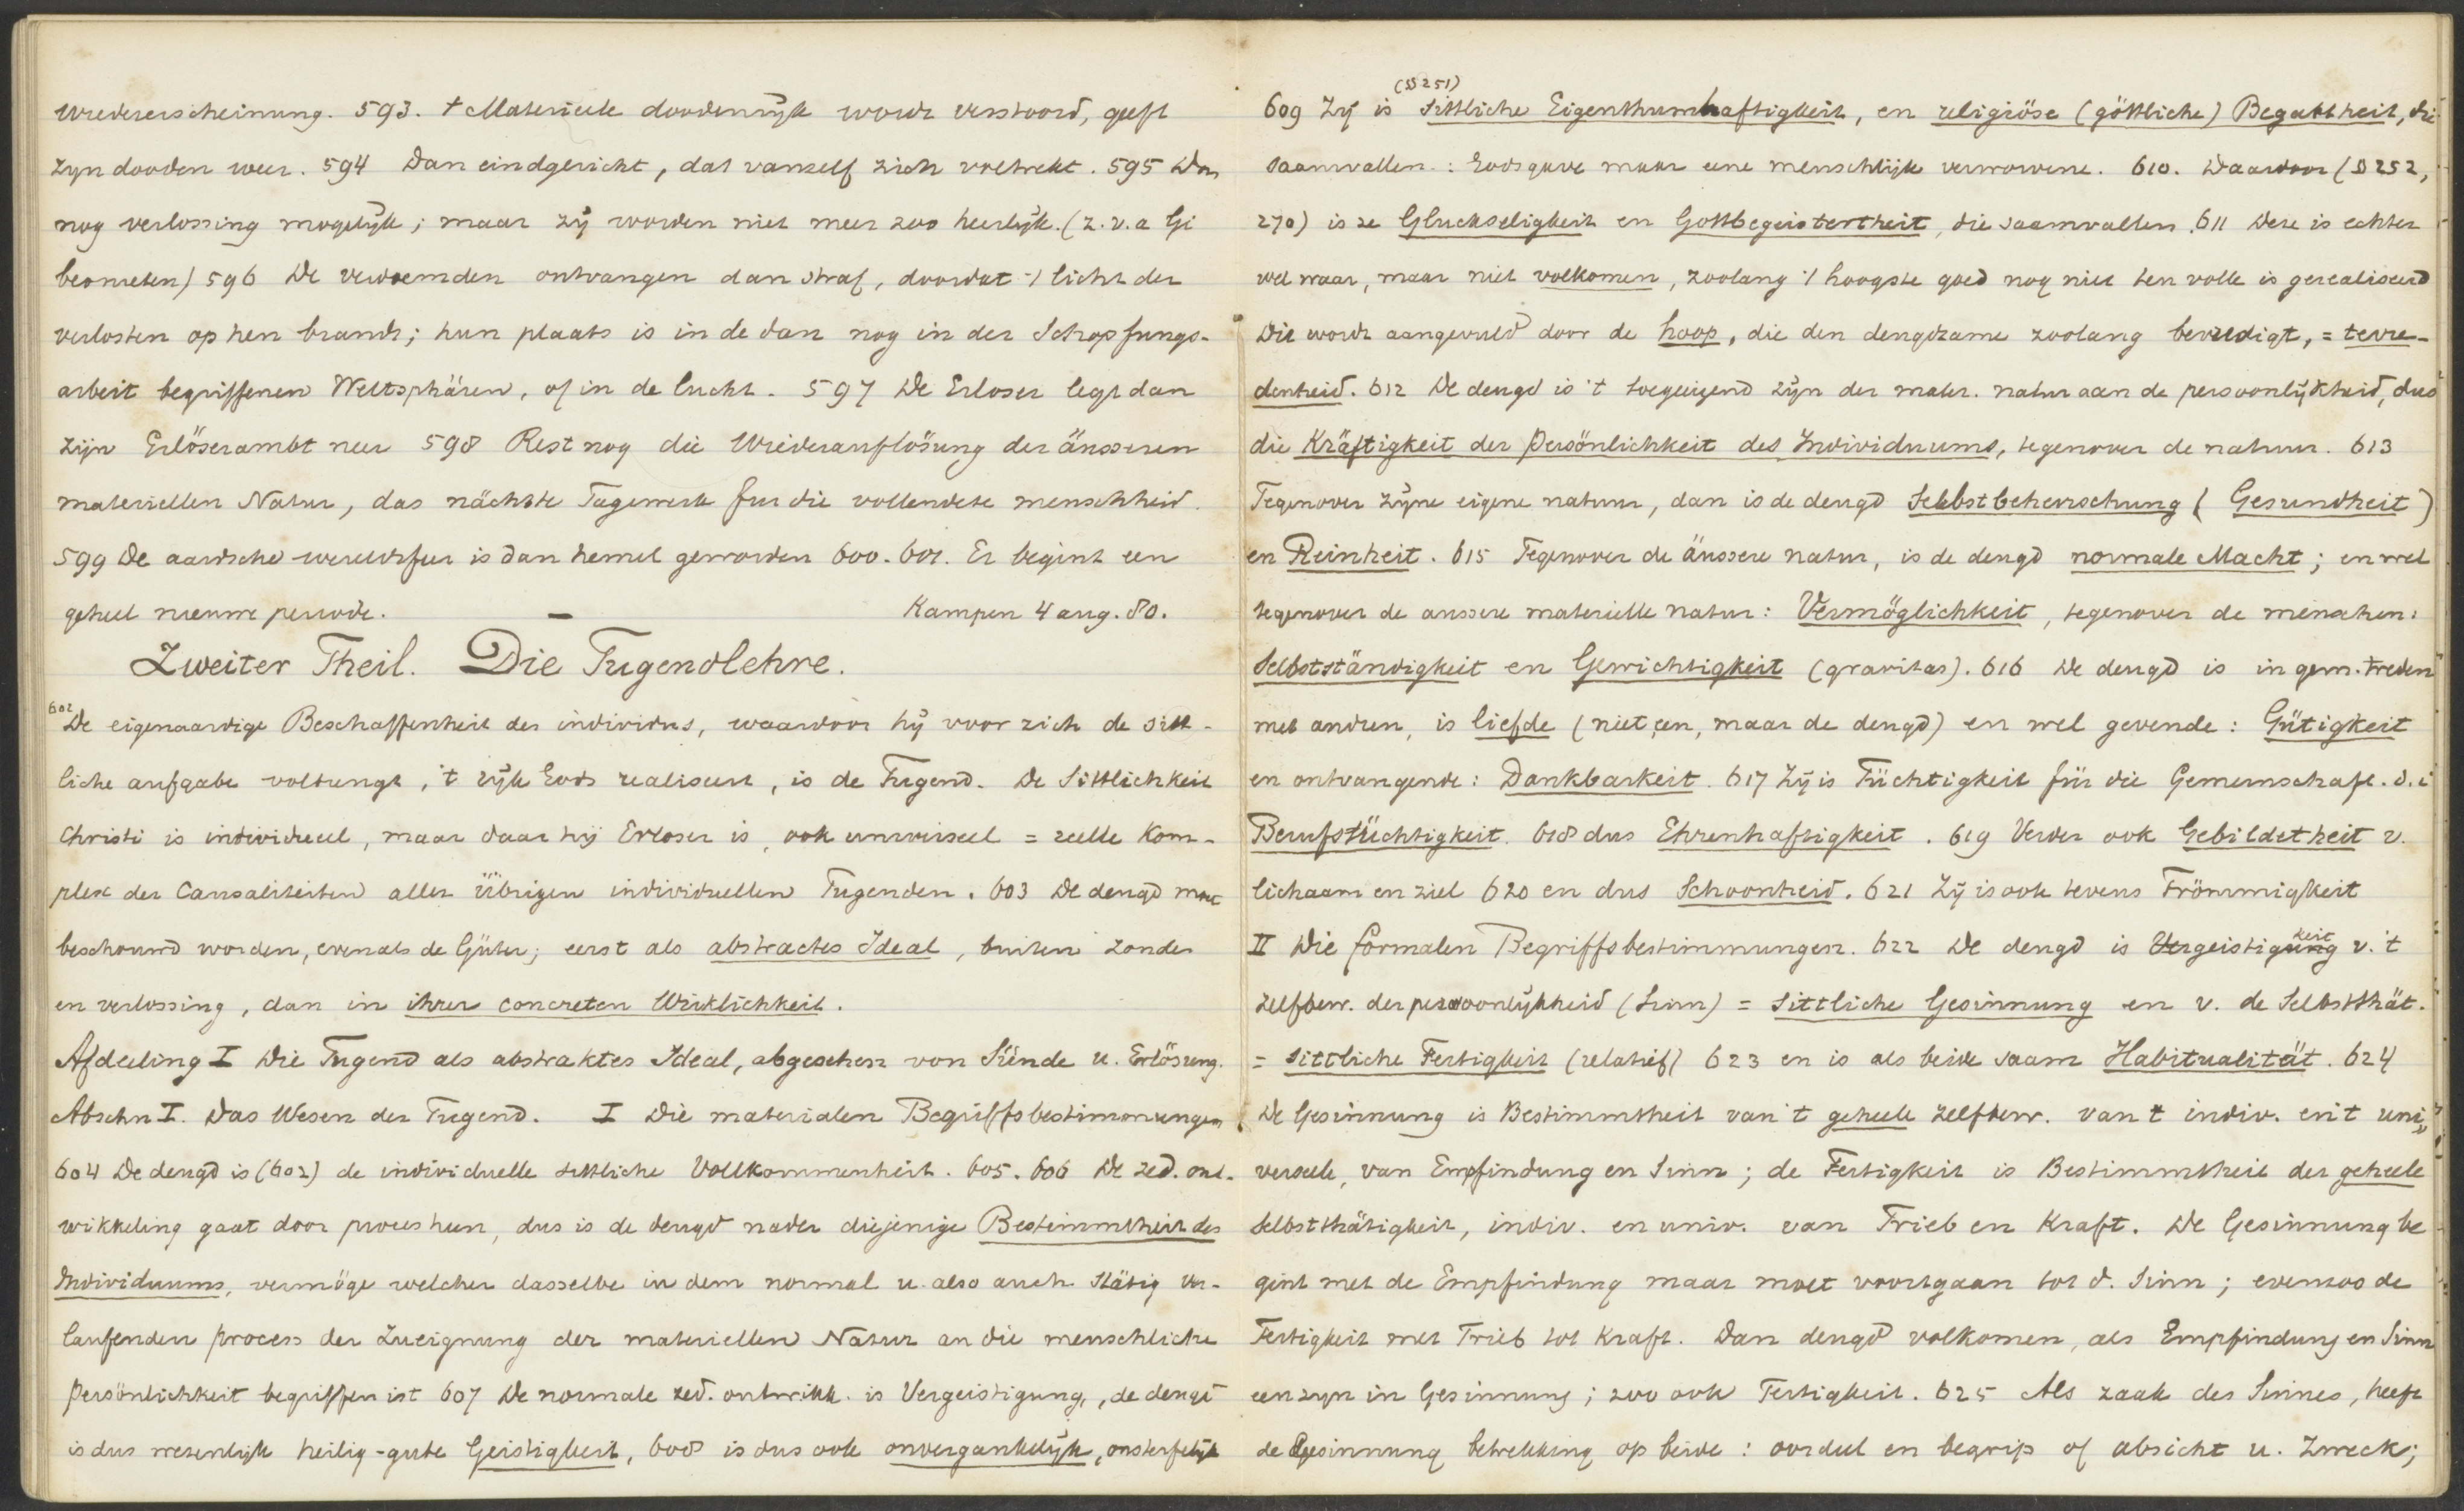 Wiedererscheinung. 593. 't Materieele doodenrijk wordt verstoord, geeft
zyn dooden weer. 594 Dan eindgericht, dat vanself zich voltrekt. 595 Dan
nog verlossing mogelijk; maar zij worden niet meer zoo heerlijk. (z. v. a
596 De verdoemden ontvangen dan straf, doordat 't licht der
verlosten op hen brandt; hun plaats is in de dan nog in der Schopfungs-
arbeit begriffenen Weltsphären, of in de lucht. 597 De Erloser legt dan
zijn Erlöserambt neer 598 Rest nog die Wiederauflösung der äusseren
materiellen Natur, das nächste Tagewerk fur die vollendete menschheid.
599 De aardsche wereldsfeer is dan hemel geworden 600. 601. Er begint een
geheel nieuwe periode. Kampen 4 aug. 80.
Zweiter Theil. Die Tugendlehre.
602 De eigenaardige Beschaffenheit des individus, waardoor hij voor zich de sitt-
liche aufgabe voltrengt, 't rijk Gods realiseert, is de Tugend. De Sittlichkeit
Christi is individueel, maar daar hij Erloser is, ook universeel = reelle Kom-
plex der Causaliteiten aller übrigen individuellen Tugenden. 603 De deugd moet
beschouwd worden, evenals de Güter; eerst als abstractes Ideal, buiten zonde
en verlossing, dan in ihrer concreten Wirklichkeit.
Afdeeling I Die Tugend als abstraktes Ideal, abgesehen von Sünde u. Erlösung.
Abschn I. Das Wesen der Tugend. I Die materialen Begriffsbestimmungen
604 De deugd is (602) de individuelle sittliche Vollkommenheit. 605. 606 De zed. ont-
wikkeling gaat door proces heen, dus is de deugd nader diejenige Bestimmtheit des
Individuums, vermöge welcher dasselbe in dem normal u. also auch stätig ver-
laufenden process der Zueignung der materiellen Natur an die menschliche
Persönlichkeit begriffen ist 607 De normale zed. ontwikk. is Vergeistigung, de deugd
is dus wezenlijk heilig-gute Geistigkeit, 608 is dus ook onvergankelijk, onsterfelijk
(§ 251)
609 Zij is sittliche Eigenthumhaftigkeit, en religiöse (göttliche) Begabtheit, die
saamvallen: Godsgave maar eene menschlijk verworvene. 610. Daardoor (§ 252,
270) is ze Gluckseligkeit en Gottbegeistertheit, die saamvallen. 611 Deze is echter
wel waar, maar niet volkomen, zoolang 't hoogste goed nog niet ten volle is gerealiseerd
Die wordt aangevuld door de hoop, die den deugdzame zoolang bevredigt, = tevre-
denheid. 612 De deugd is 't toegeëigend zijn der mater. natur aan de persoonlijkheid, dus
die Kräftigkeit der Persönlichkeit des Individuums, tegenover de natuur. 613
Tegenover zijne eigene natuur, dan is de deugd Selbstbeherrschung (Gesundheit)
en Reinheit. 615 Tegenover de äussere natur, is de deugd normale Macht; en wel
tegenover de aussere materielle natur: Vermöglichkeit, tegenover de menschen:
Selbstständigkeit en Gewichtigkeit (gravitas). 616 De deugd is in gem. treden
met andren, is liefde (niet een, maar de deugd) en wel gevende: Gütigkeit
en ontvangende: Dankbarkeit. 617 Zij is Tüchtigkeit für die Gemeinschaft. d. i
Berufstüchtigkeit. 618 dus Ehrenhaftigkeit. 619 Verder ook Gebildetheit v.
lichaam en ziel 620 en dus Schoonheid. 621 Zij is ook tevens Frömmigkeit
II Die formalen Begriffsbestimmungen. 622 De deugd is Vergeistigung keit v. 't
zelfbew. der persoonlijkheid (Sinn) = sittliche Gesinnung en v. de Selbstthät.
= sittliche Fertigkeit (relatief) 623 en is als beide saam Habitualität. 624
De Gesinnung is Bestimmtheit van 't geheele zelfbew. van 't indiv. en 't uni-
verseele, van Empfindung en Sinn; de Fertigkeit is Bestimmtheit der geheele
Selbstthätigkeit, indiv. en univ. van Trieb en Kraft. De Gesinnung be
gint met de Empfindung maar moet voortgaan tot d. Sinn; evenzoo de
Fertigkeit met Trieb tot Kraft. Dan deugd volkomen, als Empfindung en Sinn
een zyn in Gesinnung; zoo ook Fertigkeit. 625 Als zaak des Sinnes, heeft
de Gesinnung betrekking op beide: oordeel en begrip of absicht u. Zweck;